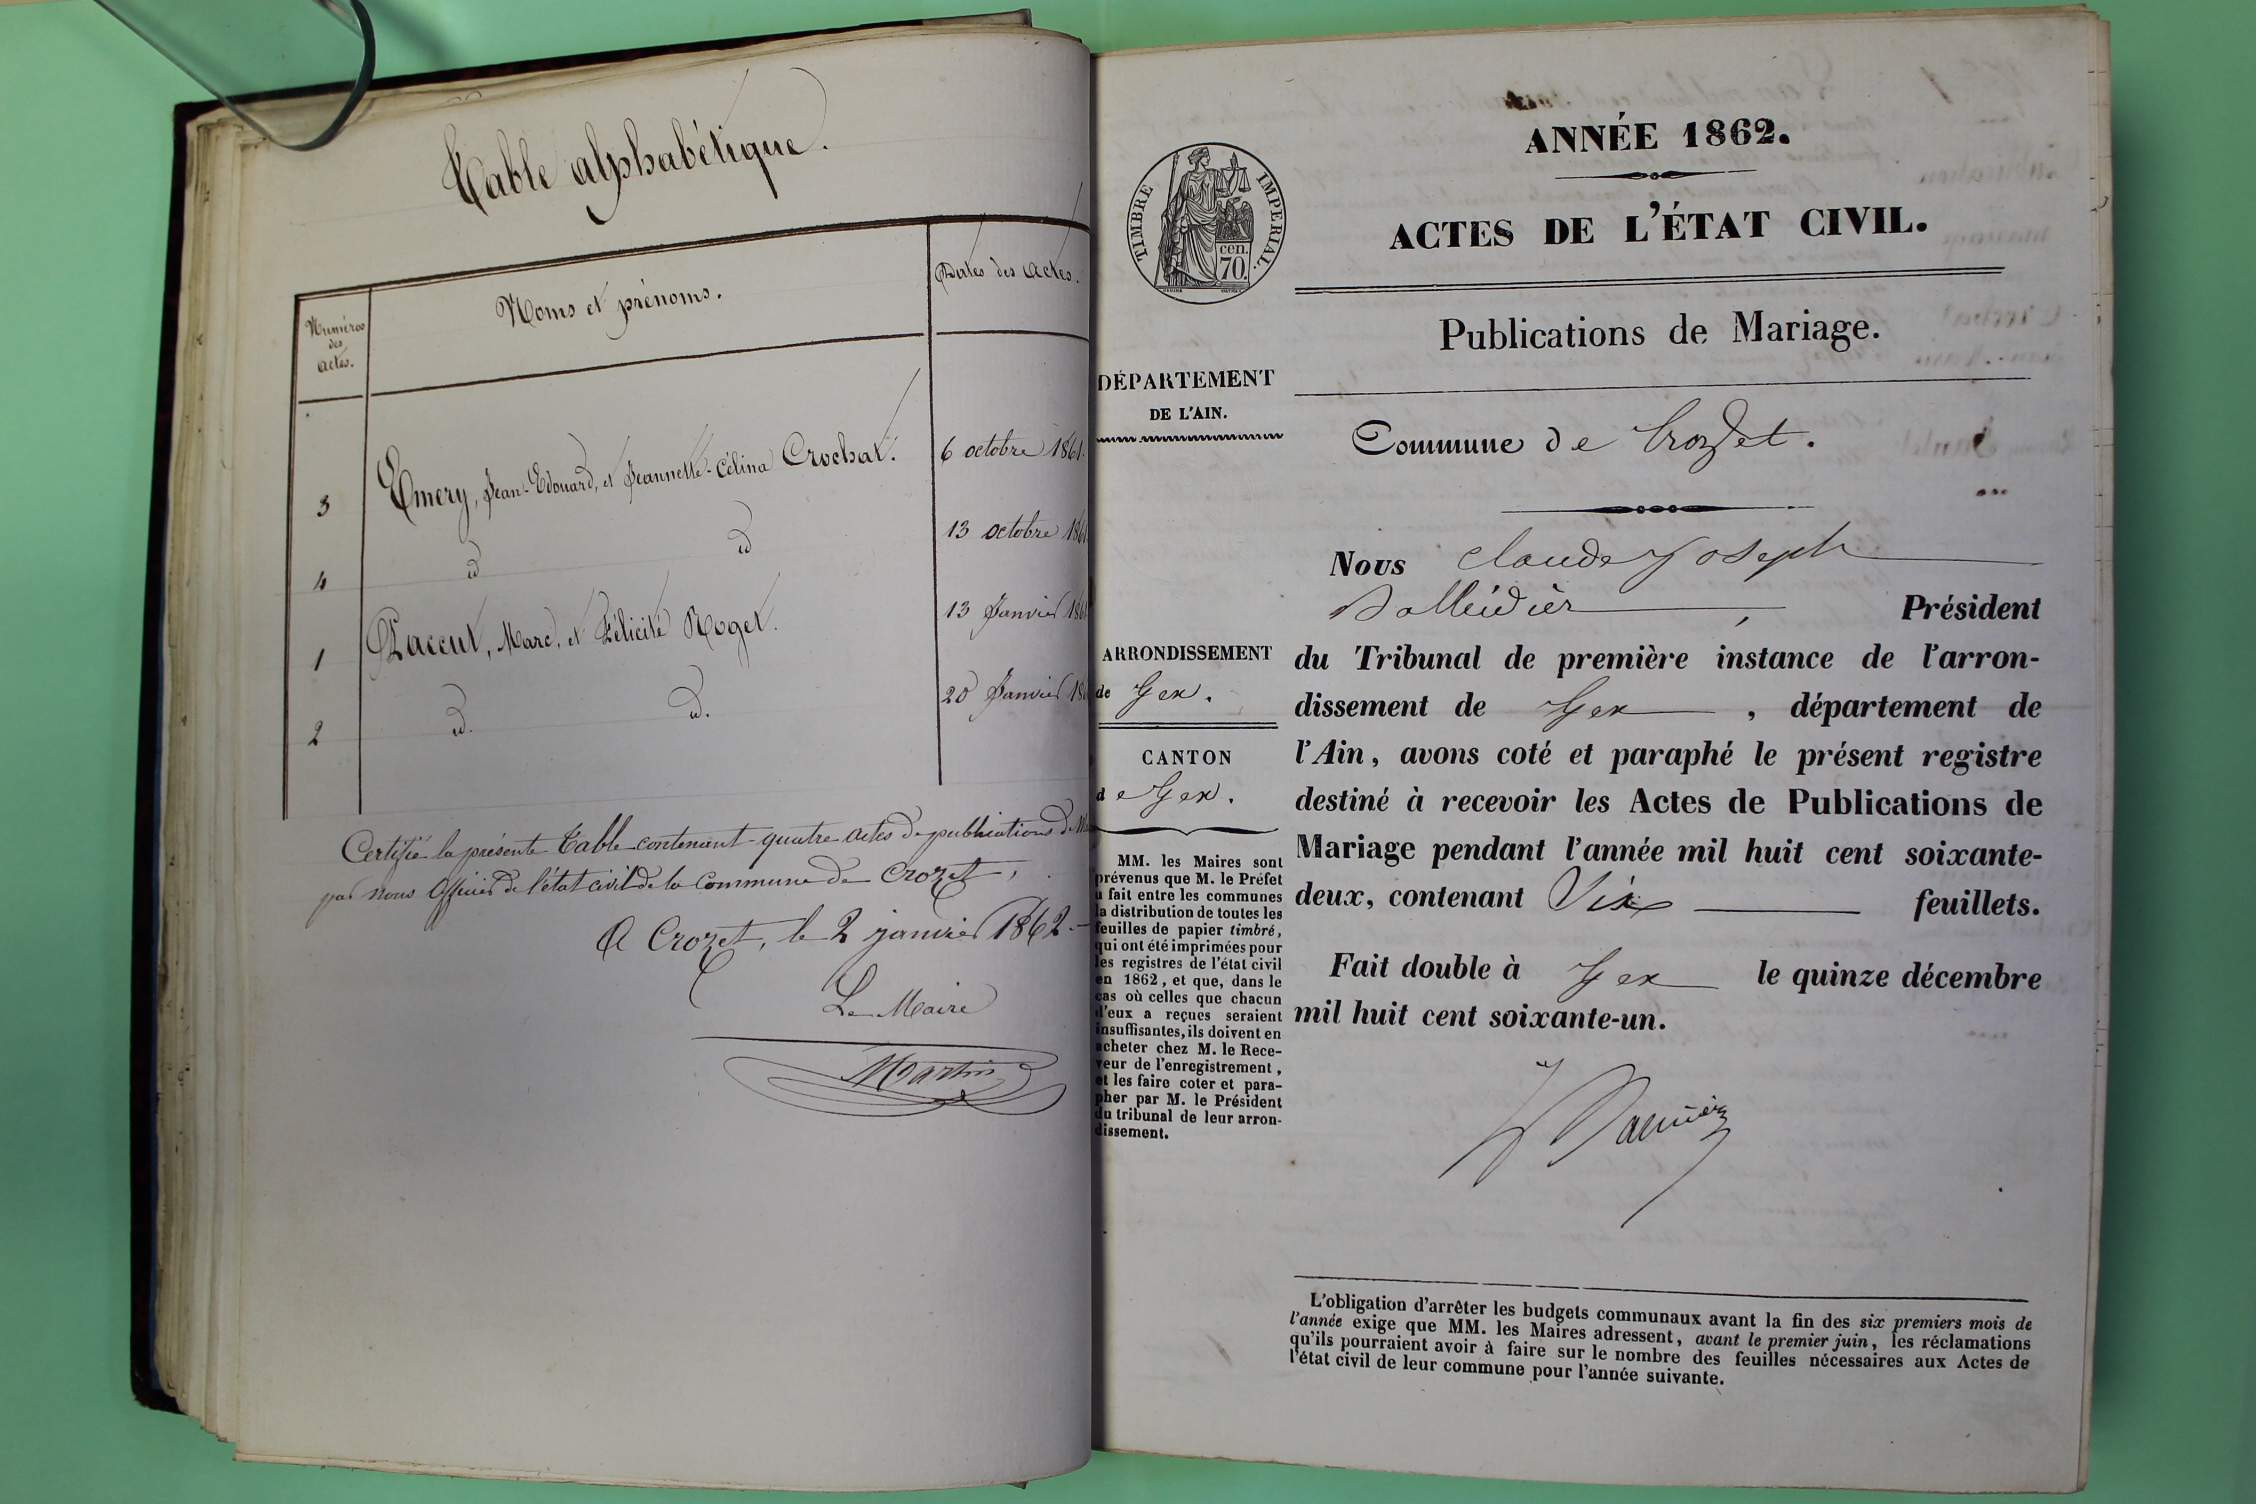 Table alphabétique.
Numéros
des
actes.
Noms et prénoms.
Dates des actes.
3 Emery, Jean-Edouard, et Jeannette-Célina Crochat. 6 octobre 1861.
4 d d 13 octobre 1861
1 Paccut, Marc, et Félicité Roget. 13 Janvier 186
2 d. d. 20 Janvier 18
Certifié la présente Table contenant quatre actes de publications de
par nous Officier de l'état civil de la Commune de Crozet,
A Crozet, le 2 janvier 1862.
Le Maire
Martin
TIMBRE IMPERIAL.
cen.
70.
DÉPARTEMENT
DE L'AIN.
ARRONDISSEMENT
de Gex.
CANTON
de Gex.
MM. les Maires sont
prévenus que M. le Préfet
a fait entre les communes
la distribution de toutes les
feuilles de papier timbré,
qui ont été imprimées pour
les registres de l'état civil
en 1862, et que, dans le
cas où celles que chacun
d'eux a reçues seraient
insuffisantes, ils doivent en
acheter chez M. le Rece-
veur de l'enregistrement,
et les faire coter et para-
pher par M. le Président
du tribunal de leur arron-
dissement.
ANNÉE 1862.
ACTES DE L'ÉTAT CIVIL.
Publications de Mariage.
Commune de Crozet.
Nous Claude Joseph
, Président
du Tribunal de première instance de l'arron-
dissement de Gex, département de
l'Ain, avons coté et paraphé le présent registre
destiné à recevoir les Actes de Publications de
Mariage pendant l'année mil huit cent soixante-
deux, contenant Six feuillets.
Fait double à Gex le quinze décembre
mil huit cent soixante-un.
L'obligation d'arrêter les budgets communaux avant la fin des six premiers mois de
l'année exige que MM. les Maires adressent, avant le premier juin, les réclamations
qu'ils pourraient avoir à faire sur le nombre des feuilles nécessaires aux Actes de
l'état civil de leur commune pour l'année suivante.